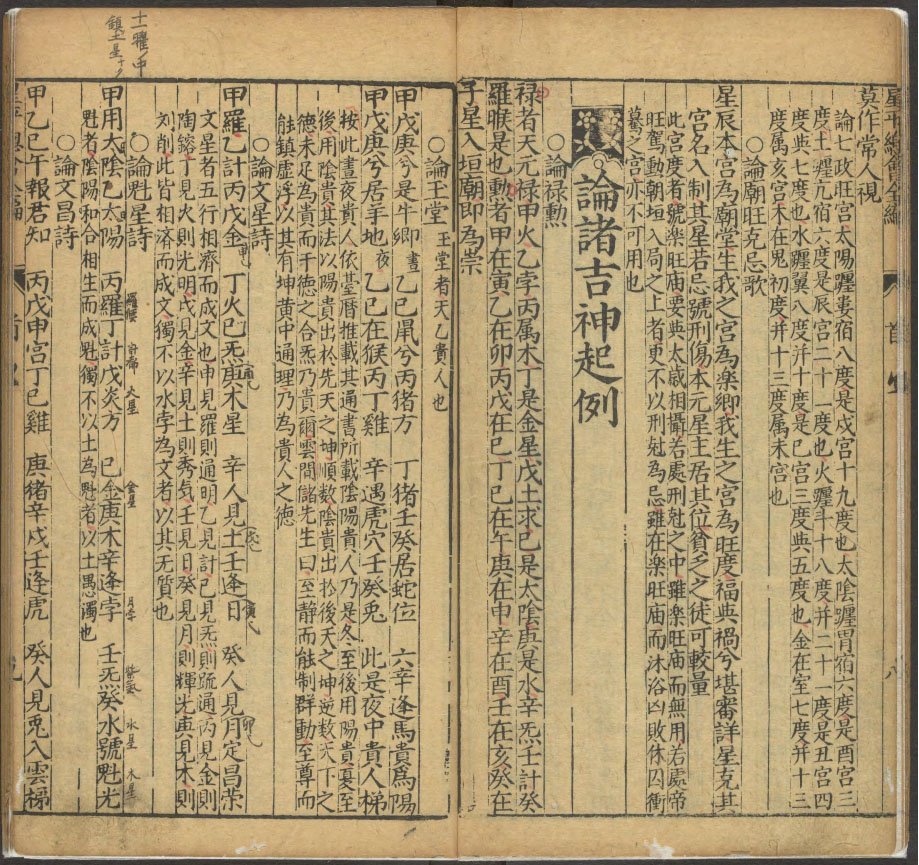 莫作常人視
論七政旺宮太陽躔婁宿八度是戍宮十九度也太陰躔胃宿六度是酉宮三
度土躔亢宿六度是辰宮二十一度也火躔斗十八度并二十一度是丑宮四
度與七度也水躔翼八度并十度是巳宮三度與五度也金在室七度并十三
度属亥宮木在鬼初度并十三度属未宮也
○論廟旺克忌歌
星辰本宮為廟堂生我之宮為楽卿我生之宮為旺度福與禍兮堪審詳星克其
宮名入制其星若忌號刑傷本元星主居其位貧乏之徒可較量
此宮度者號楽旺庙要與太歲相攝若處刑尅之中雖楽旺庙而無用若處帝
旺駕動朝垣入局之上者更不以刑尅為忌雖在楽旺庙而沐浴凶敗休囚衝
墓之宮亦不可用也
論諸吉神起例
○論禄勲
禄者天元禄甲火乙孛丙属木丁是金星戊土求己是太陰庚是水辛炁壬計癸
羅睺是也勲者甲在寅乙在卯丙戊在巳丁己在午庚在申辛在酉壬在亥癸在
子星入垣廟即為崇
○論玉堂 玉堂者天乙貴人也
甲戊庚兮是牛卿 晝 乙巳鼠兮丙猪方 丁猪壬癸居蛇位 六辛逢馬貴爲陽
甲戊庚兮居羊地 夜 乙巳在猴丙丁雞 辛遇虎穴壬癸兎 此是夜中貴人梯
按此晝夜貴人依臺暦推載其通書所載陰陽貴人乃是冬至後用陽貴夏至
後用陰貴其法以陽貴出於先天之坤順数陰貴出於後天之坤逆数天下之
德未足為貴而干德之合炁乃貴爾雲間儲先生曰至静而能制群動至尊而
能鎮虛浮以其有坤黄中通理乃為貴人之德
○論文星詩
甲羅乙計丙戊金 丁火巳炁庚木星 辛人見土壬逢日 癸人見月定昌荣
文星者五行相濟而成文也甲見羅則通明乙見計巳見炁則䟽通丙見金則
陶鎔丁見火則光明戊見金辛見土則秀気壬見日癸見月則輝光庚見木則
刘削此皆相济而成文獨不以水孛為文者以其无質也
○論魁星詩
甲用太陰乙太陽 丙羅丁計戊炎方 巳金庚木辛逢孛 壬炁癸水號魁光
魁者陰陽和合相生而成魁獨不以土為魁者以土愚濁也
○論文昌詩
甲乙巳午報君知 丙戊申宮丁巳雞 庚猪辛戍壬逢虎 癸人見兎入雲梯